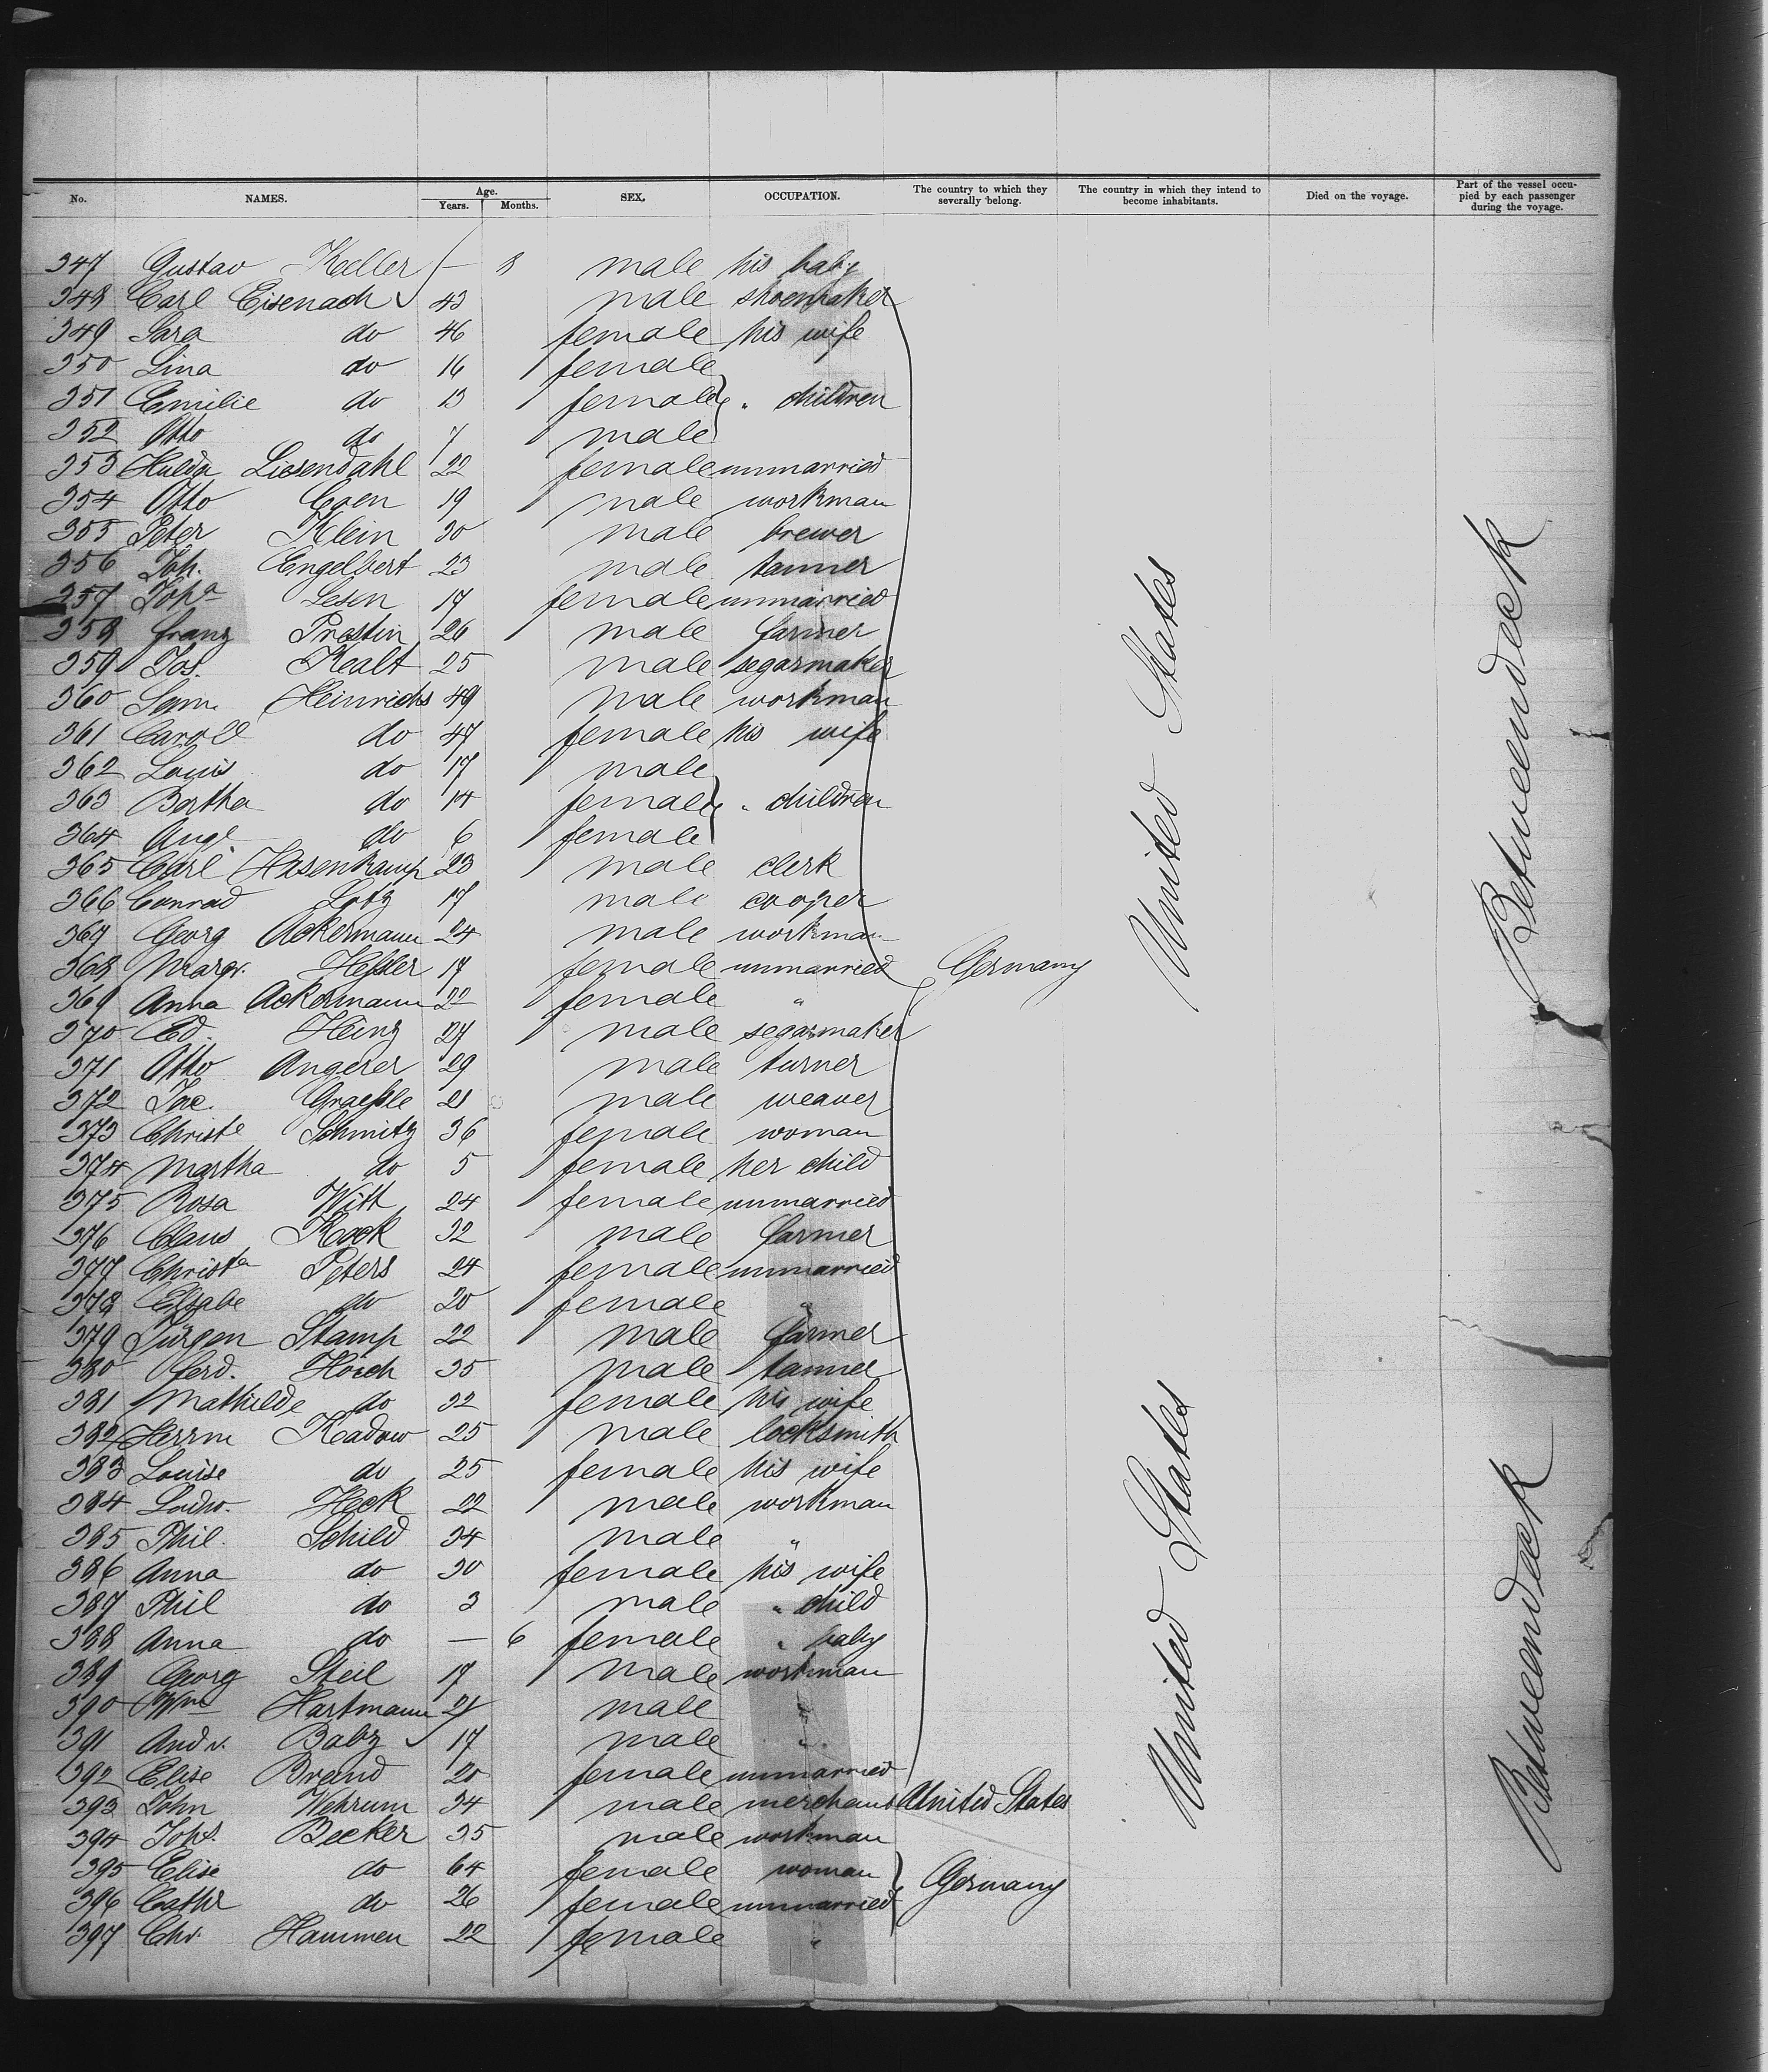 No. NAMES. Age. Years. Months. SEX. OCCUPATION. The country to which they severally belong. The country in which they intend to become inhabitants. Died on the voyage. Part of the vessel occupied by each passenger during the voyage.
347 Gustav Keller — 8 male his baby
348 Carl Eisenach 43 male shoemaker
349 Sara do 46 female his wife
350 Lina do 16 female
351 Emilie do 13 female " children
352 Otto do 7 male
353 Hulda Liesendahl 22 female unmarried
354 Otto Coen 19 male workman
355 Peter Klein 30 male brewer
356 Joh. Engelbert 23 male tanner
357 Joha Lesen 17 female unmarried
358 Franz Prestin 26 male farmer
359 Jos. Kealt 25 male segarmaker
360 Sam. Heinrichs 49 male workman
361 Caroll do 47 female his wife
362 Louis do 17 male
363 Bertha do 14 female " children
364 Auge do 6 female
365 Carl Hasenkamp 23 male clerk
366 Conrad Lotz 17 male cooper
367 Georg Ackermann 24 male workman
368 Margr. Heßler 17 female unmarried Germany United States Betweendeck
369 Anna Ackermann 22 female "
370 Ed. Heinz 27 male segarmaker
371 Otto Angerer 29 male turner
372 Jac. Graeßle 21 male weaver
373 Christe Schmitz 36 female woman
374 Martha do 5 female her child
375 Rosa Witt 24 female unmarried
376 Claus Kock 32 male farmer
377 Christa Peters 24 female unmarried
378 Elsabe do 20 female "
379 Jürgen Stamp 22 male farmer
380 Ferd. Hoich 35 male tanner
381 Mathilde do 32 female his wife
382 Herrm Kadow 25 male locksmith
383 Louise do 25 female his wife
384 Ludw. Heck 22 male workman
385 Phil. Schild 34 male "
386 Anna do 30 female his wife
387 Phil do 3 male " child
388 Anna do — 6 female " baby
389 Georg Steil 17 male workman
390 Wm Hartmann 21 male "
391 Andr. Babz 17 male "
392 Elise Brand 20 female unmarried
393 John Wehrum 34 male merchant United States United States Betweendeck
394 Johs. Becker 35 male workman
395 Elise do 64 female woman Germany
396 Cathr do 26 female unmarried
397 Chr. Hammen 22 female "